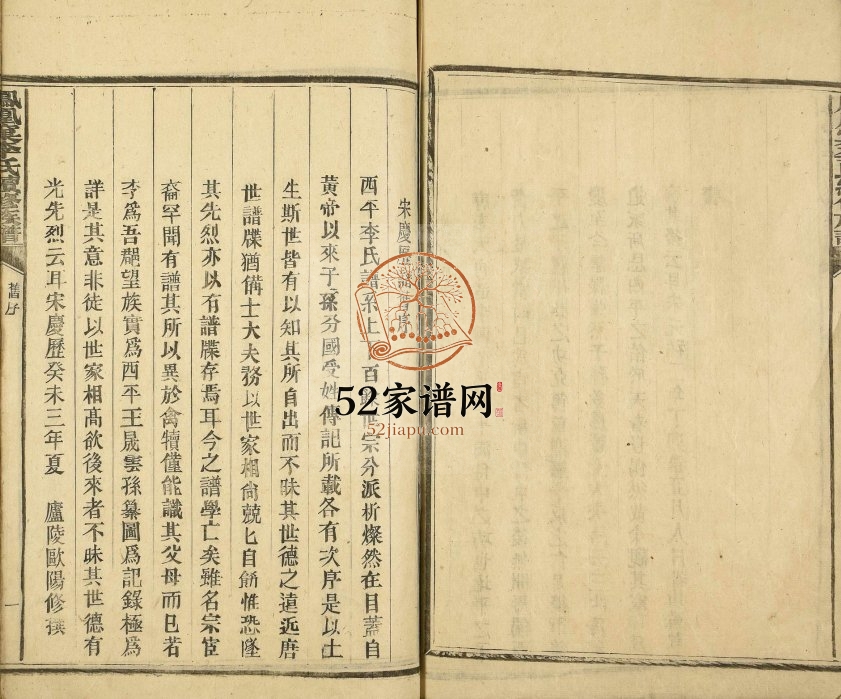 宋慶歷譜舊序
西平李氏譜系上 百 世宗分派析燦然在目蓋自
黃帝以來子孫分國受姓傳記所載各有次序是以士
生斯世皆有以知其所自出而不昧其世德之遠近唐
世譜牒猶備士大夫務以世家相尙兢匕自飭惟恐墜
其先烈亦以有譜牒存焉耳今之譜學亡矣雖名宗宦
裔罕聞有譜其所以異於禽犢僅能識其父母而已若
李爲吾 望族實爲西平王晟雲孫纂圖爲記錄極爲
詳是其意非徒以世家相高欲後來者不昧其世德有
光先烈云耳宋慶歷癸未三年夏 廬陵歐陽修撰
鳳凰 李氏續修族譜
舊序
一
52家谱网
52jiapu.com